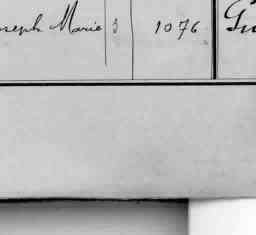 oseph Marie 3 1076